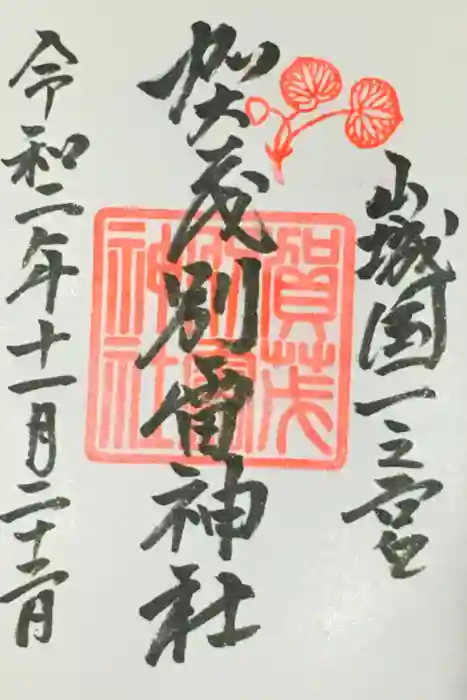 山城国一之宮
賀茂別雷神社
令和二年十一月二十二日
賀茂
別雷
神社